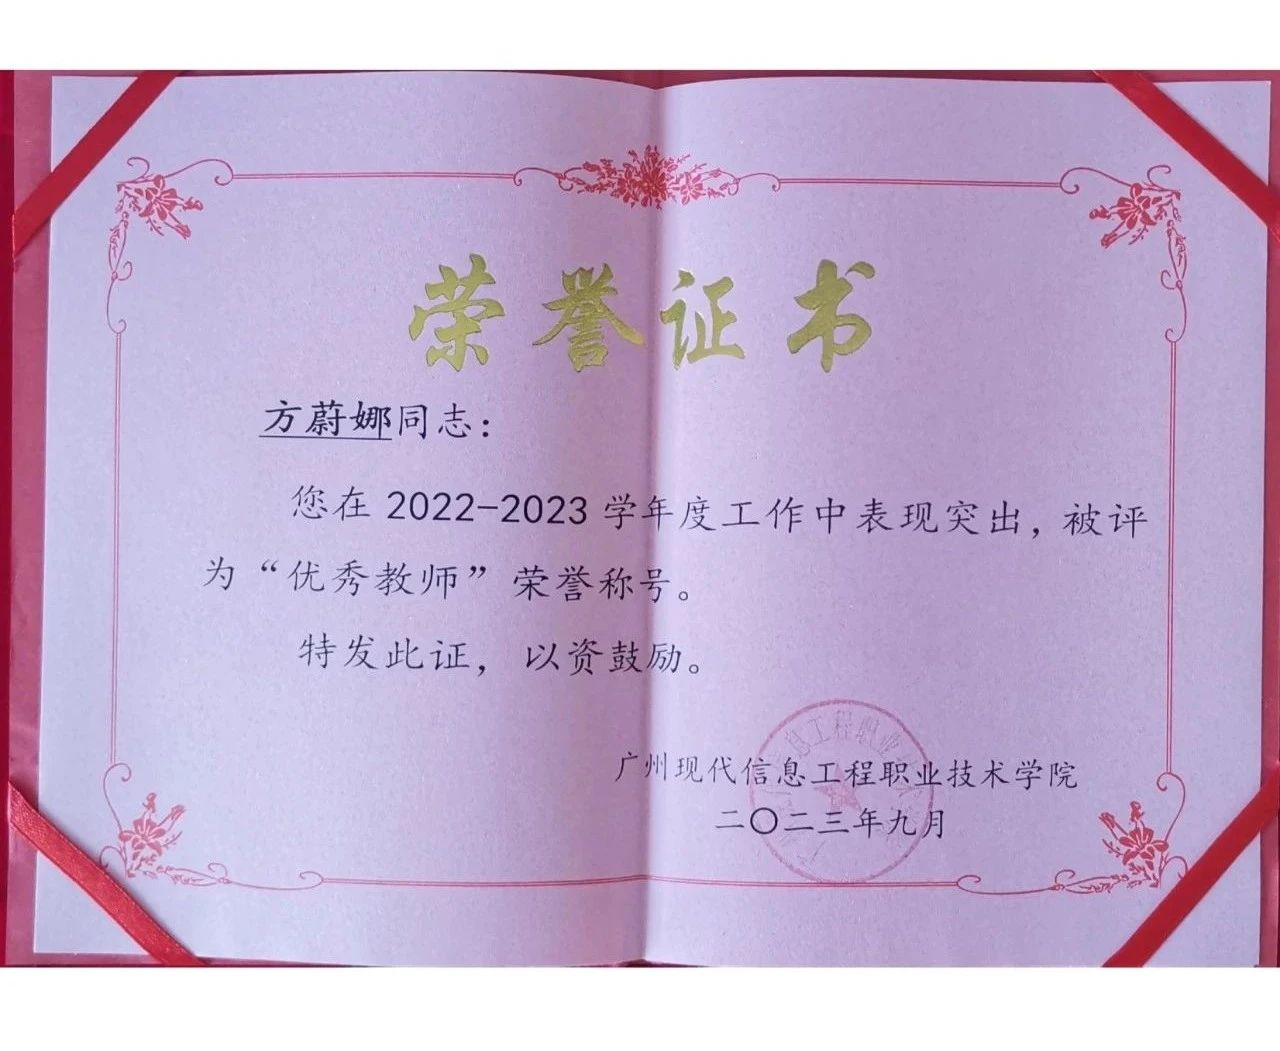 荣誉证书
方蔚娜同志：
您在 2022-2023 学年度工作中表现突出，被评
为“优秀教师”荣誉称号。
特发此证，以资鼓励。
广州现代信息工程职业技术学院
二〇二三年九月
息工程职业